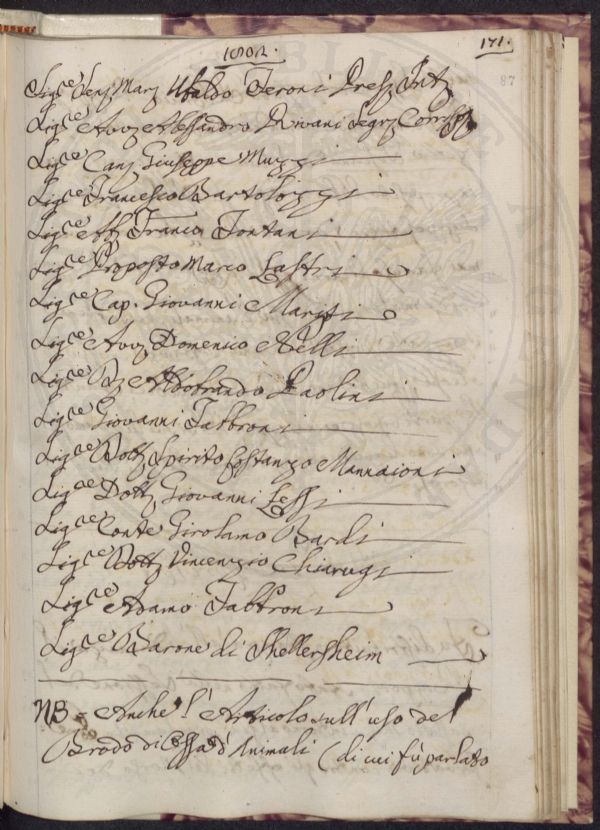 1802.
171.
87
Sig.re Sen.e Mar.e Ubaldo Feroni Pres.e Int.e
Sig.re Avv.o Alessandro Rivani Seg.rio Corrisp.e
Sig.re Can.e Giuseppe Muzzi
Sig.re Francesco Bartolozzi
Sig.re Franco Fontani
Sig.re Proposto Marco Lastri
Sig.re Cap. Giovanni Mariti
Sig.re Avv.o Domenico Nelli
Sig.re Aldobrando Paolini
Sig.re Giovanni Fabbroni
Sig.re Dott.e Spirito Costanzo Mannaioni
Sig.re Dott.e Giovanni Lessi
Sig.re Conte Girolamo Bardi
Sig.re Dott.e Vincenzio Chiarugi
Sig.re Adamo Fabbroni
Sig.re Barone di Shellersheim
NB = Anche l'Articolo sull'uso del
Brodo di Ossa d'Animali (di cui fù parlato